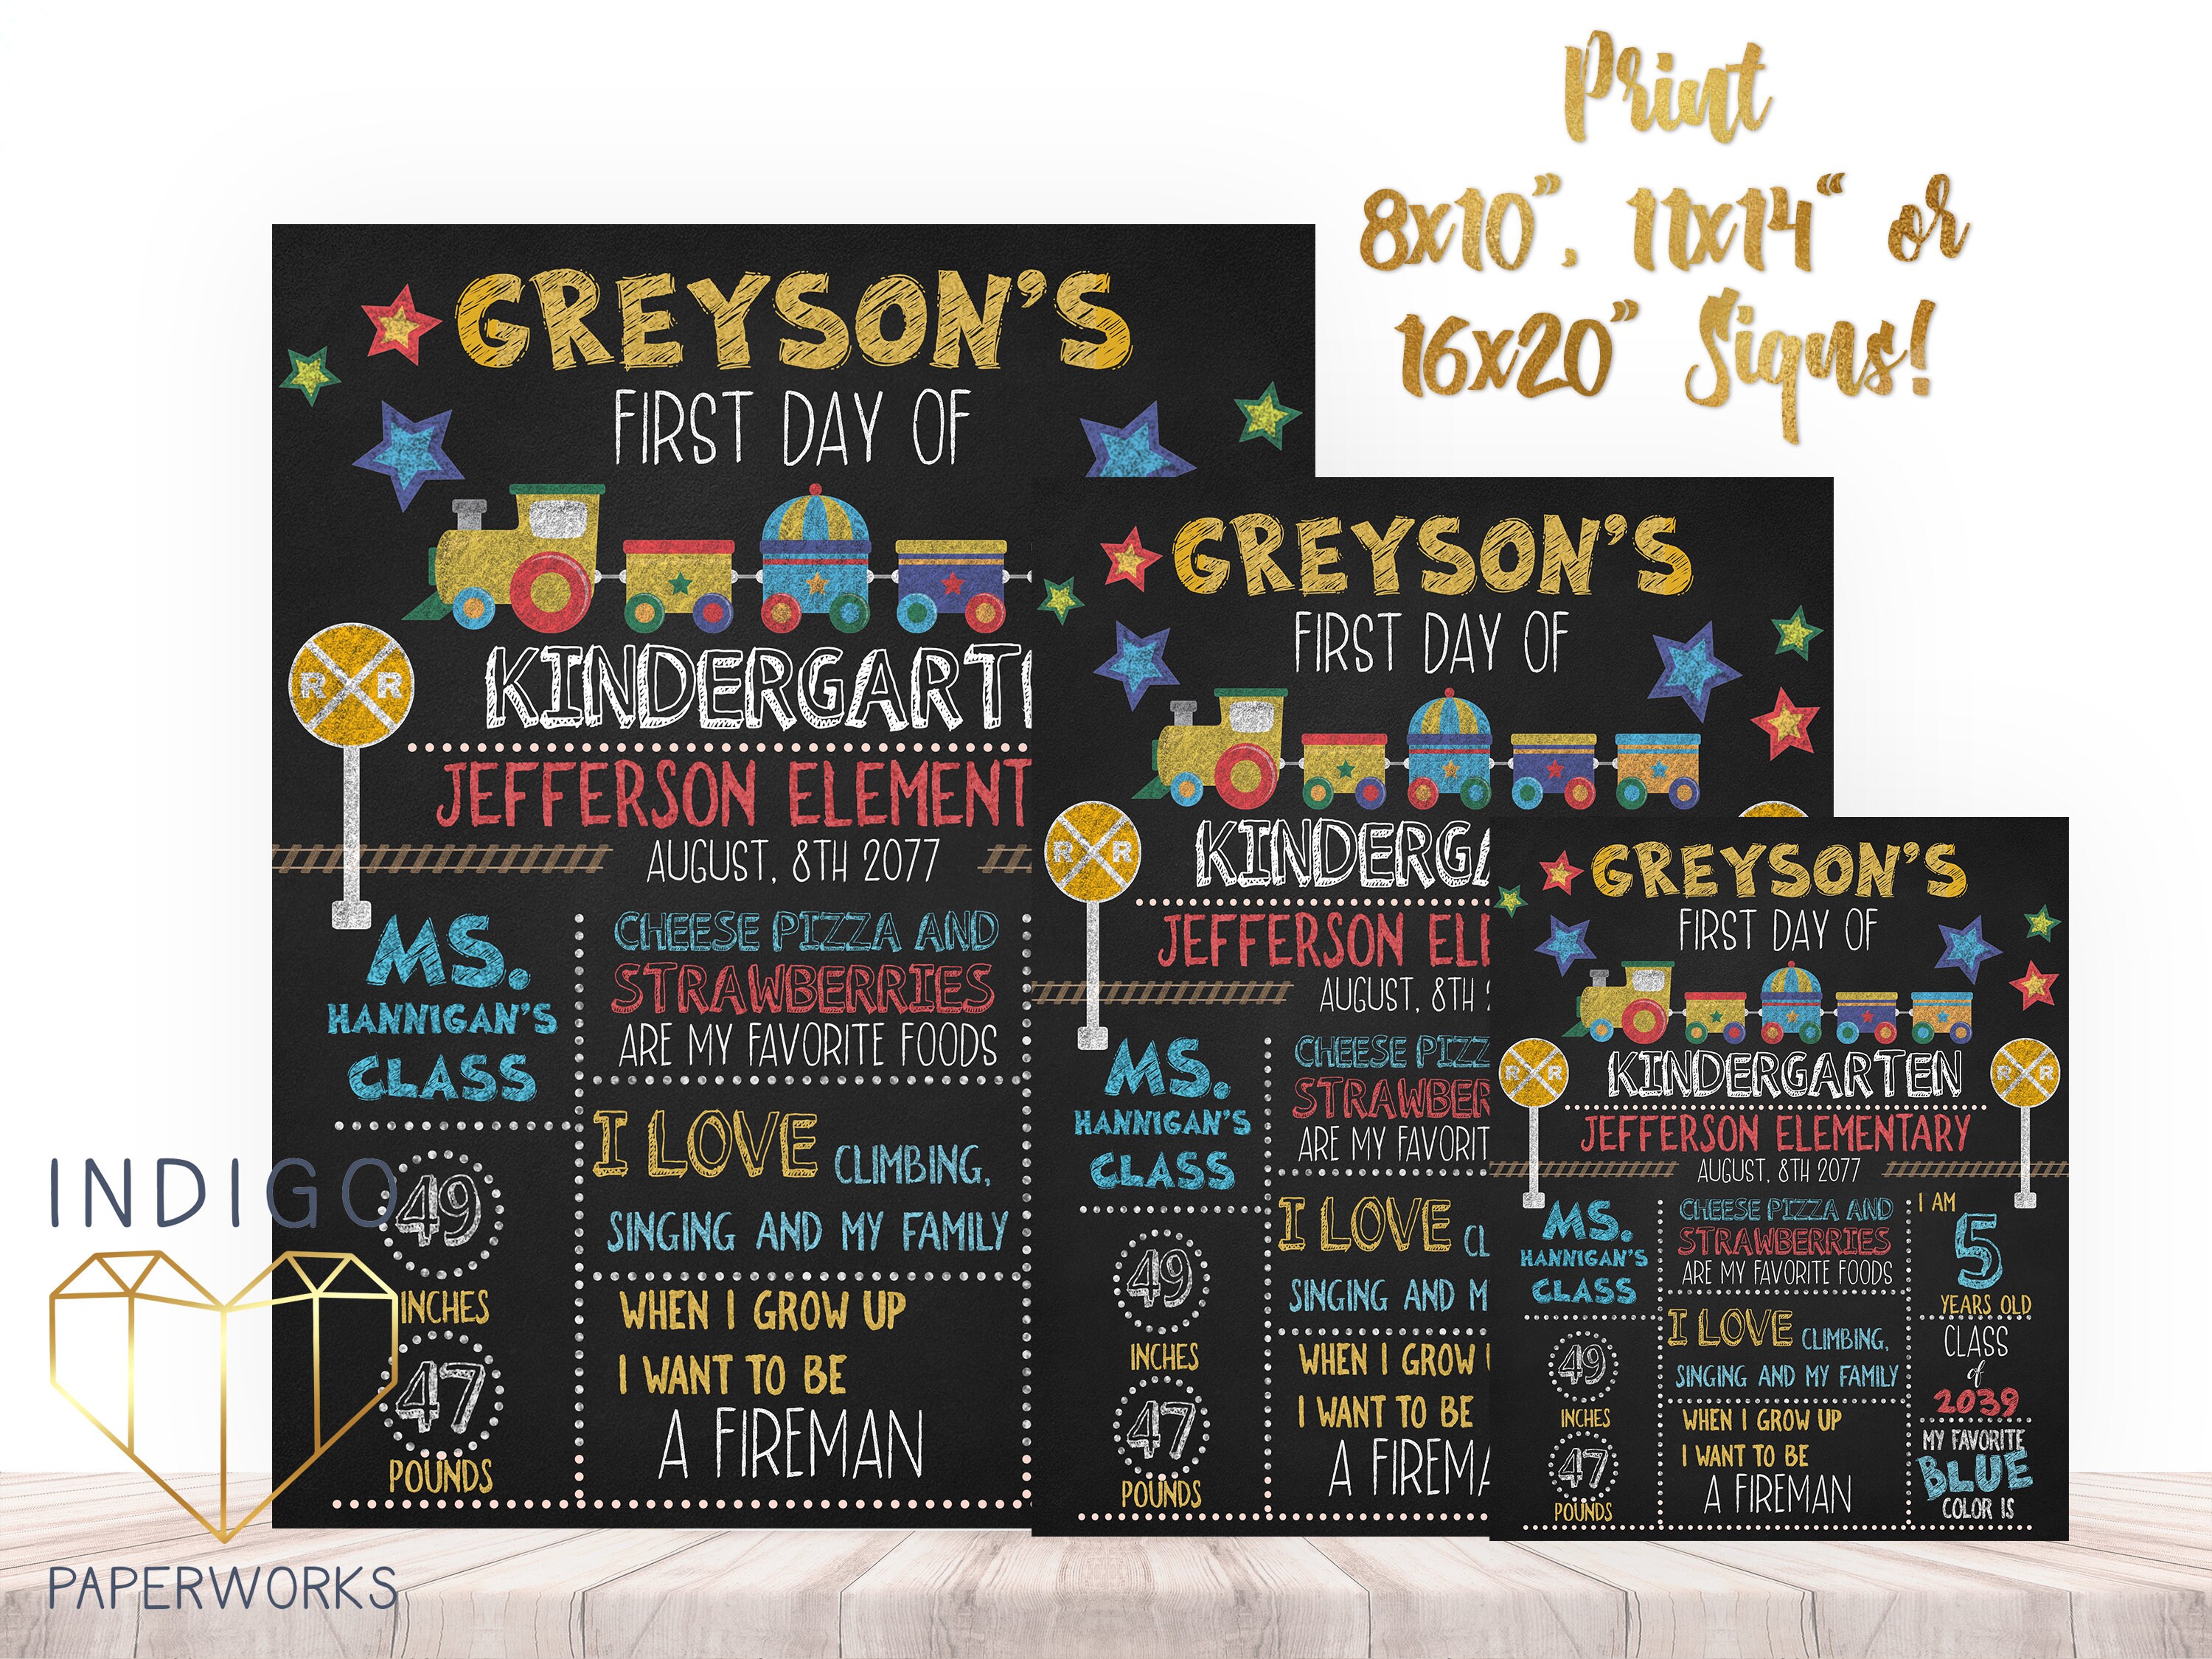 Print
8x10", 11x14" or
16x20" Signs!
GREYSON'S
FIRST DAY OF
KINDERGARTE
RXR
JEFFERSON ELEMENT
AUGUST, 8TH 2077
MS.
HANNIGAN'S
CLASS
49
INCHES
47
POUNDS
CHEESE PIZZA AND
STRAWBERRIES
ARE MY FAVORITE FOODS
I LOVE CLIMBING,
SINGING AND MY FAMILY
WHEN I GROW UP
I WANT TO BE
A FIREMAN
GREYSON'S
FIRST DAY OF
RXR
KINDERGA
JEFFERSON ELE
AUGUST, 8TH
MS.
HANNIGAN'S
CLASS
49
INCHES
47
POUNDS
CHEESE PIZZ
STRAWBER
ARE MY FAVORIT
I LOVE CL
SINGING AND M
WHEN I GROW
I WANT TO BE
A FIREMA
GREYSON'S
FIRST DAY OF
RXR KINDERGARTEN RXR
JEFFERSON ELEMENTARY
AUGUST, 8TH 2077
MS.
HANNIGAN'S
CLASS
49
INCHES
47
POUNDS
CHEESE PIZZA AND
STRAWBERRIES
ARE MY FAVORITE FOODS
I LOVE CLIMBING,
SINGING AND MY FAMILY
WHEN I GROW UP
I WANT TO BE
A FIREMAN
I AM
5
YEARS OLD
CLASS
of
2039
MY FAVORITE
BLUE
COLOR IS
INDIGO
PAPERWORKS